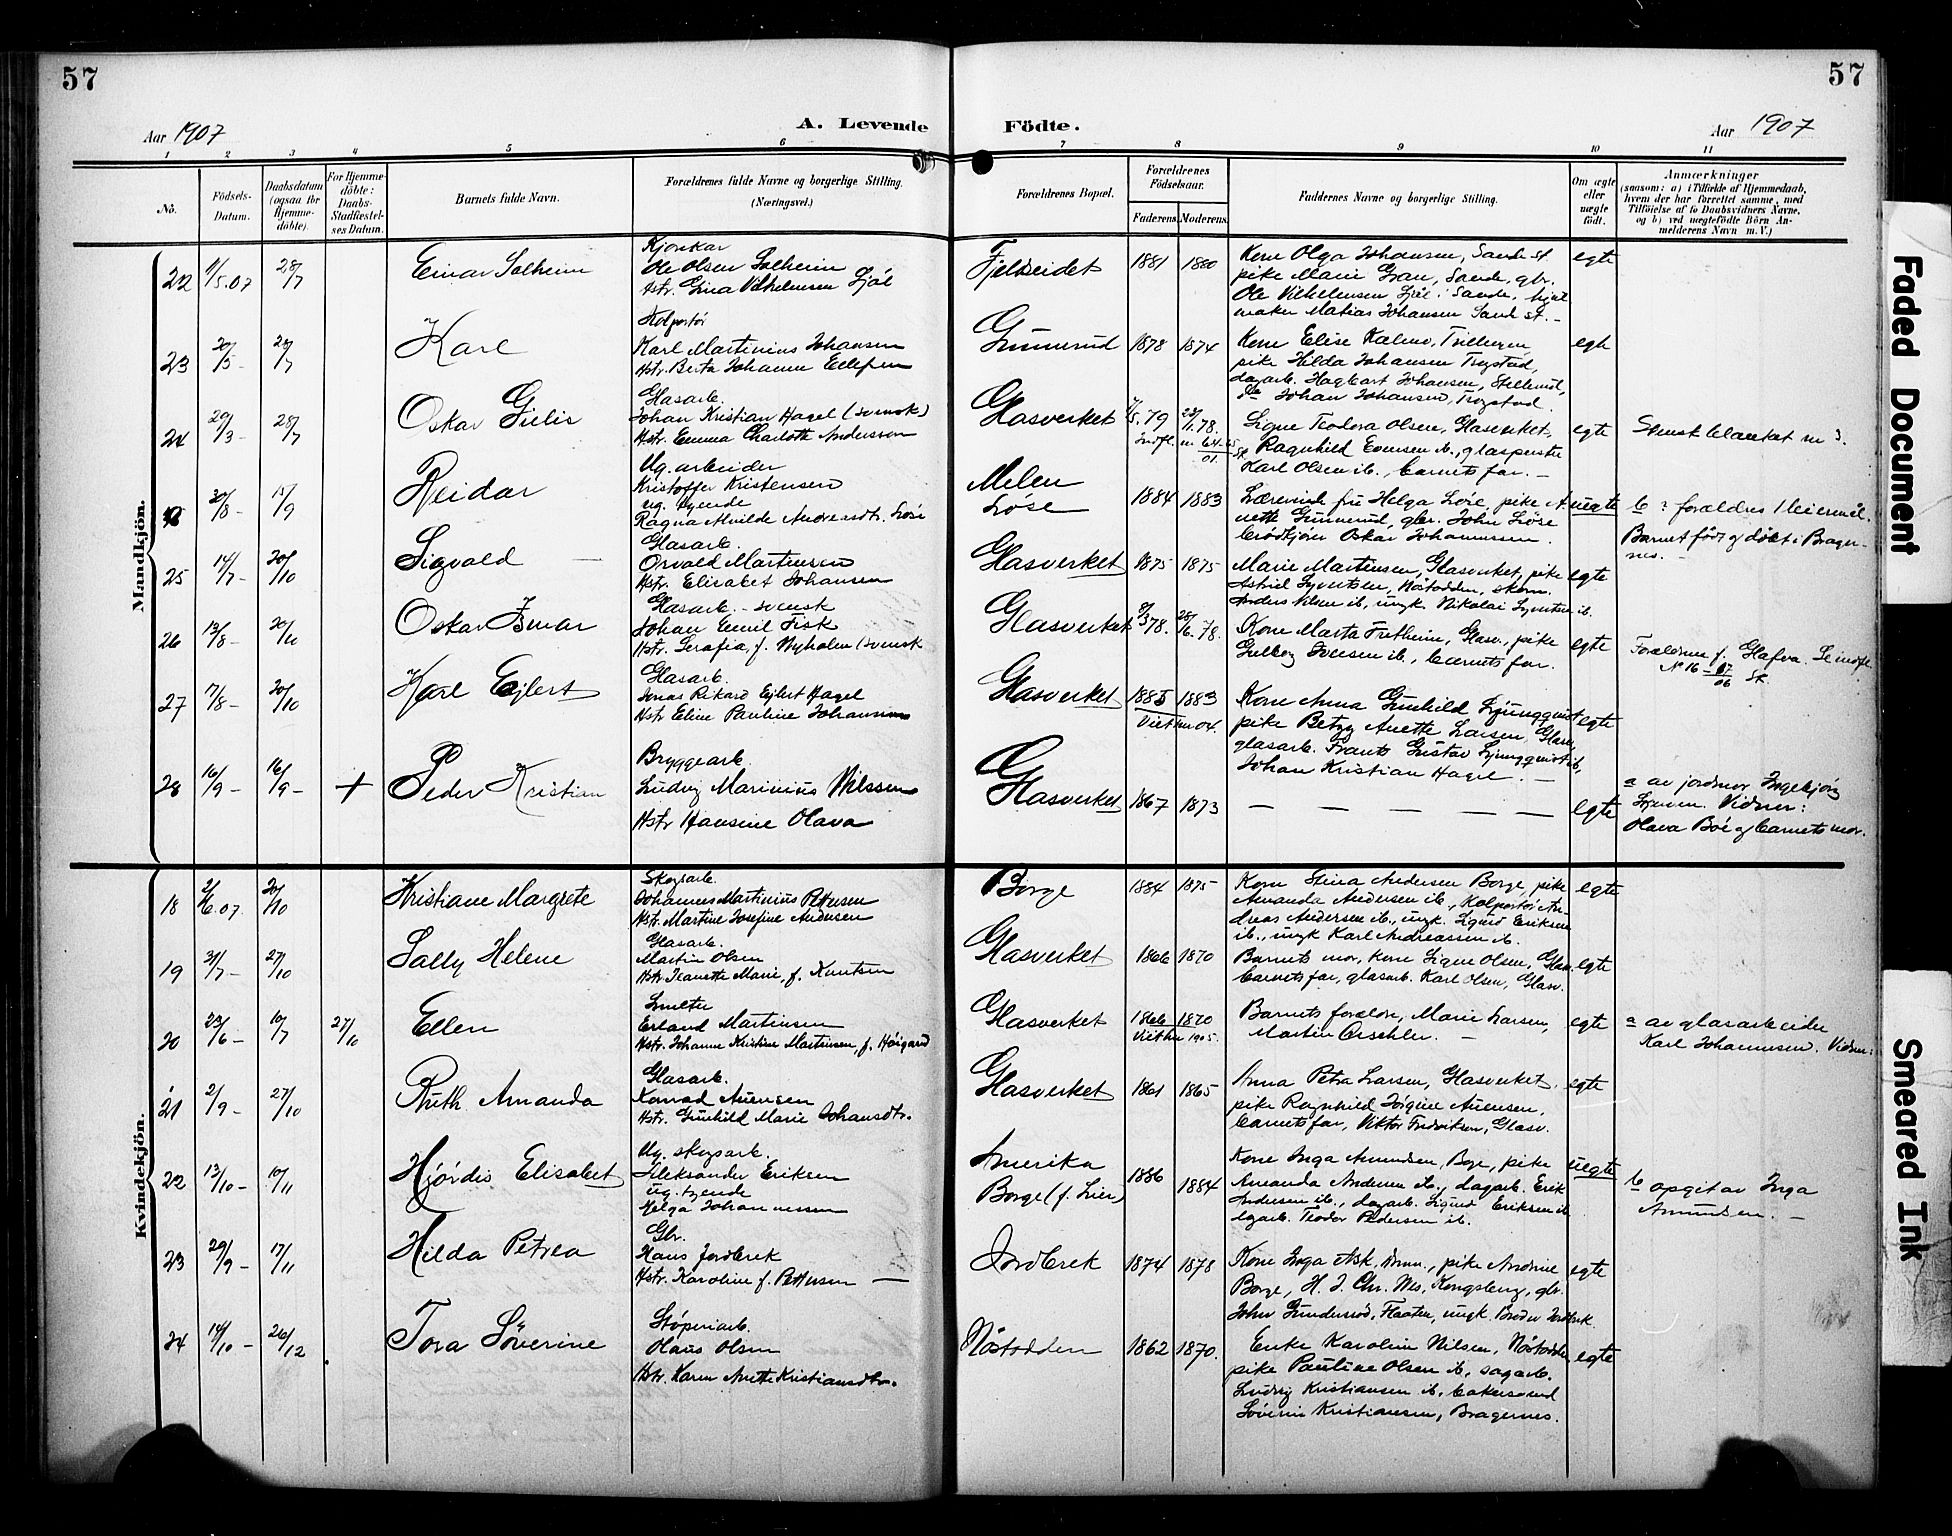 57
57
Aar 1907
A. Levende
Födte.
Aar 1907
1 2 3 4 5 6 7 8 9 10 11
No.
Födsels-Datum.
Daabsdatum (ogsaa for Hjemme-döbte).
For Hjemme-döbte: Daabs-Stadfæstel-ses Datum.
Barnets fulde Navn.
Forældrenes fulde Navne og borgerlige Stilling. (Næringsvei.)
Forældrenes Bopæl.
Forældrenes Födselsaar.
Faderens. Moderens.
Faddernes Navne og borgerlige Stilling.
Om ægte eller uægte födt.
Anmærkninger
(saasom: a) i Tilfælde af Hjemmedaab, hvem der har forrettet samme, med Tilföielse af to Daabsvidners Navne, og b) ved uægtefödte Börn An-melderens Navn m. V.)
Mandkjön.
22 1/5.07 28/7 Einar Solheim
Ole Olsen Solheim
Hstr. Gina Vilhelmsen
Fjeldseidet 1881 1880
Kone Olga Johansen, Sande st.
pike Marie Gran, Sande, gbr.
Ole Vilhelmsen
maker Matias Johansen Sand st. –
egte
23 20/5 – 28/7 Karl
Kolportör
Karl Martinius Johansen
Hstr. Berta Johanne Ellefsen
Gunnerud 1878 1874
Kone Elise
pike Hilda Johansen
dagarb. Hagbart Johansen,
do Johan Johansen,
24 29/3 – 28/7 Oskar
Glasarb.
Johan Kristian Hagel (svensk)
Hstr. Emma Charlotte Andersson
Glasverket
Signe Teodora Olsen, Glasverket,
Ragnhild Evensen ib., glaspuster
Karl Olsen ib., barnets far. –
egte
Svensk blanket nr 3.
30/8 – 15/9 Reidar
Ug. arbeider
Kristoffer Kristensen
ug. tjenende
Ragna Alvilde Andreasdtr.
Melen
1884 1883
Helga
Gunnerud, gbr. John
Oskar Johannesen.
uegte
b : forældres
Barnet født og døbt i Brager-
nes.
25 14/7 – 20/10 Sigvald –
Glasarb.
Orvald Martinsen
Hstr. Elisabet Johansen
Glasverket 1875 1875
Marie Martinsen, Glasverket, pike
Astrid Syvertsen, Nöstodden, skom.
Anders Nilsen ib., ungk. Nikolai Syvertsen ib.
egte
26 13/8 – 20/10 Oskar
Glasarb. – svensk
Johan Emil Fisk
Hstr. Serafia, f. Nyholm (svensk
Glasverket
Kone Marta Fretheim, Glasv., pike
Iversen ib., barnets far.
egte
27 7/8 – 20/10 Karl Ejlert
Glasarb.
Jonas Rikard Ejlert Hagel
Hstr Eline Pauline Johansen
Glasverket 1885 1883
Kone Anna Gunhild Ljungqvist
pike Betzy Anette Larsen, Glasv.,
glasarb. Frants Gustav Ljungqvist ib.,
Johan Kristian Hagel. –
egte
28 16/9 – 16/9 – + Peder Kristian
Bryggearb.
Ludvig Marinius Nilssen
Hstr Hansine Olava
Glasverket 1867 1873
– – – – – –
egte
a av jordmor Ingebjörg
Vidner:
Olava Böe og barnets mor.
Kvindekjön.
18 2/6.07 20/10 Kristiane Margrete
Skogsarb.
Johannes Martinius Pettersen
Hstr. Martine Josefine Andersen
Borge 1884 1875
Kone Stina Andersen Borge, pike
Amanda Andersen ib., Kolportör An-
dreas Andersen ib., ungk. Sigurd Eriksen
ib., ungk Karl Andreassen ib.
egte
19 31/7 – 27/10 Sally Helene
Glasarb.
Martin Olsen
Hstr Jeanette Marie, f. Knutsen
Glasverket 1866 1870
Barnets mor, kone Signe Olsen, Glasv.
barnets far, glasarb. Karl Olsen, Glasv.
egte
20 23/6 – 10/7 27/10 Ellen
Smelter
Erland Martinsen
Hstr. Johanne Kristine Martinsen, f. Höigaard
Glasverket 1866 1870
Barnets forældre, Marie Larsen,
Martin –
egte
a av glasarbeider
Karl Johannesen. Vidner:
21 2/9 – 27/10 Ruth Amanda
Glasarb.
Konrad Auensen
Hstr. Gunhild Marie Johansdtr.
Glasverket 1861 1865
Anna Petra Larsen, Glasverket,
pike Ragnhild Jörgine Auensen,
barnets far, Viktor Fredriksen, Glasv.
egte
22 13/10 – 10/11 Hjördis Elisabet
Ug. skogsarb.
Aleksander Eriksen
ug. tjende
Helga Johannessen
Amerika
Borge (f. Lier) 1886 1884
Kone Inga Amundsen, Borge, pike
Amanda Andersen ib., dagarb. Erik
Andersen ib., dagarb. Sigurd Eriksen ib
dgarb. Teodor Pedersen ib.
uegte
b opgit av Inga
Amundsen. –
23 29/9 – 17/11 Hilda Petrea
Gbr.
Hans Jordbrek
Hstr. Karoline f. Pettersen –
Jordbrek 1874 1878
Kone Inga Ask, pike Andrine
Borge, H. J. Chr. Kongsberg, gbr.
John Gunderud, Flaaten, ungk. Jordbrek.
egte
24 14/10 – 26/12 Tora Söverine
Støperiarb.
Olaus Olsen
Hstr. Karen Anette Kristiansdtr.
Nöstodden 1862 1870.
Enke Karoline Nilsen, Nöstodden
pike Pauline Olsen ib., sagarb.
Ludvig Kristiansen ib., bakersvend
Söverin Kristiansen, Bragernes.
egte
Faded Document
Smeared Ink